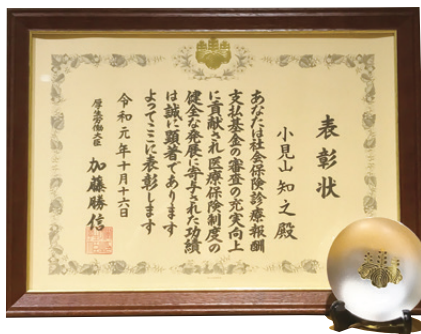 表彰状
小見山 知之 殿
あなたは社会保険診療報酬
支払基金の審査の充実向上
に貢献され医療保険制度の
健全な発展に寄与された功績
は誠に顕著であります
よってここに表彰します
令和元年十月十六日
厚生労働大臣 加藤勝信